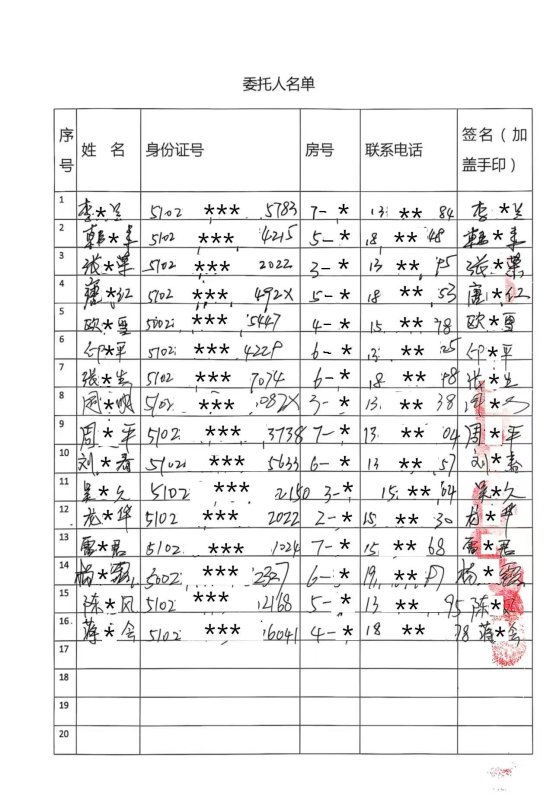 委托人名单
序号 姓 名 身份证号 房号 联系电话 签名（加盖手印）
1 李*兰 5102 *** 5783 7-* 13 ** 84 李*兰
2 韩* 5102 *** 4215 5-* 18 ** 48 韩*
3 张*荣 5102 *** 2022 3-* 13 ** 95 张*荣
4 唐*红 5102 *** 492X 5-* 18 ** 53 唐*红
5 欧* 5002 *** 5447 4-* 15 ** 78 欧*
6 *平 5102 *** 4229 6-* 13 ** 25 *平
7 张* 5102 *** 7074 6-* 18 ** 98 张*
8 周*明 5102 *** 087X 3-* 13 ** 38
9 周*平 5102 *** 3738 7-* 13 ** 04 周*平
10 刘*春 5102 *** 5633 6-* 13 ** 57 刘*春
11 吴*久 5102 *** 2150 3-* 15 ** 64 吴*久
12 龙*华 5102 *** 2022 2-* 15 ** 30 龙*华
13 *君 5102 *** 1024 7-* 15 ** 68 *君
14 杨* 5002 *** 2327 6-* 19 ** 杨*
15 陈*风 5102 *** 2168 5-* 13 ** 95 陈*风
16 蒋*会 5102 *** 6041 4-* 18 ** 78 蒋*会
17
18
19
20